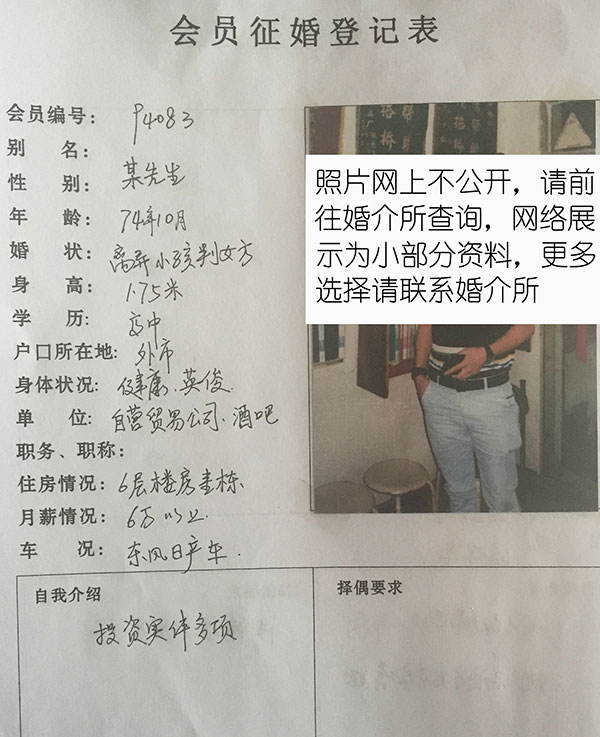 会员征婚登记表
会员编号: P4083
别 名:
性 别: 某先生
年 龄: 74年10月
婚 状: 离异小孩判女方
身 高: 1.75米
学 历: 高中
户口所在地: 外市
身体状况: 健康、英俊.
单 位: 自营贸易公司、酒吧
职务、职称:
住房情况: 6层楼房壹栋
月薪情况: 6万以上.
车 况: 东风日产车.
照片网上不公开，请前
往婚介所查询，网络展
示为小部分资料，更多
选择请联系婚介所
自我介绍
投资实体多项
择偶要求